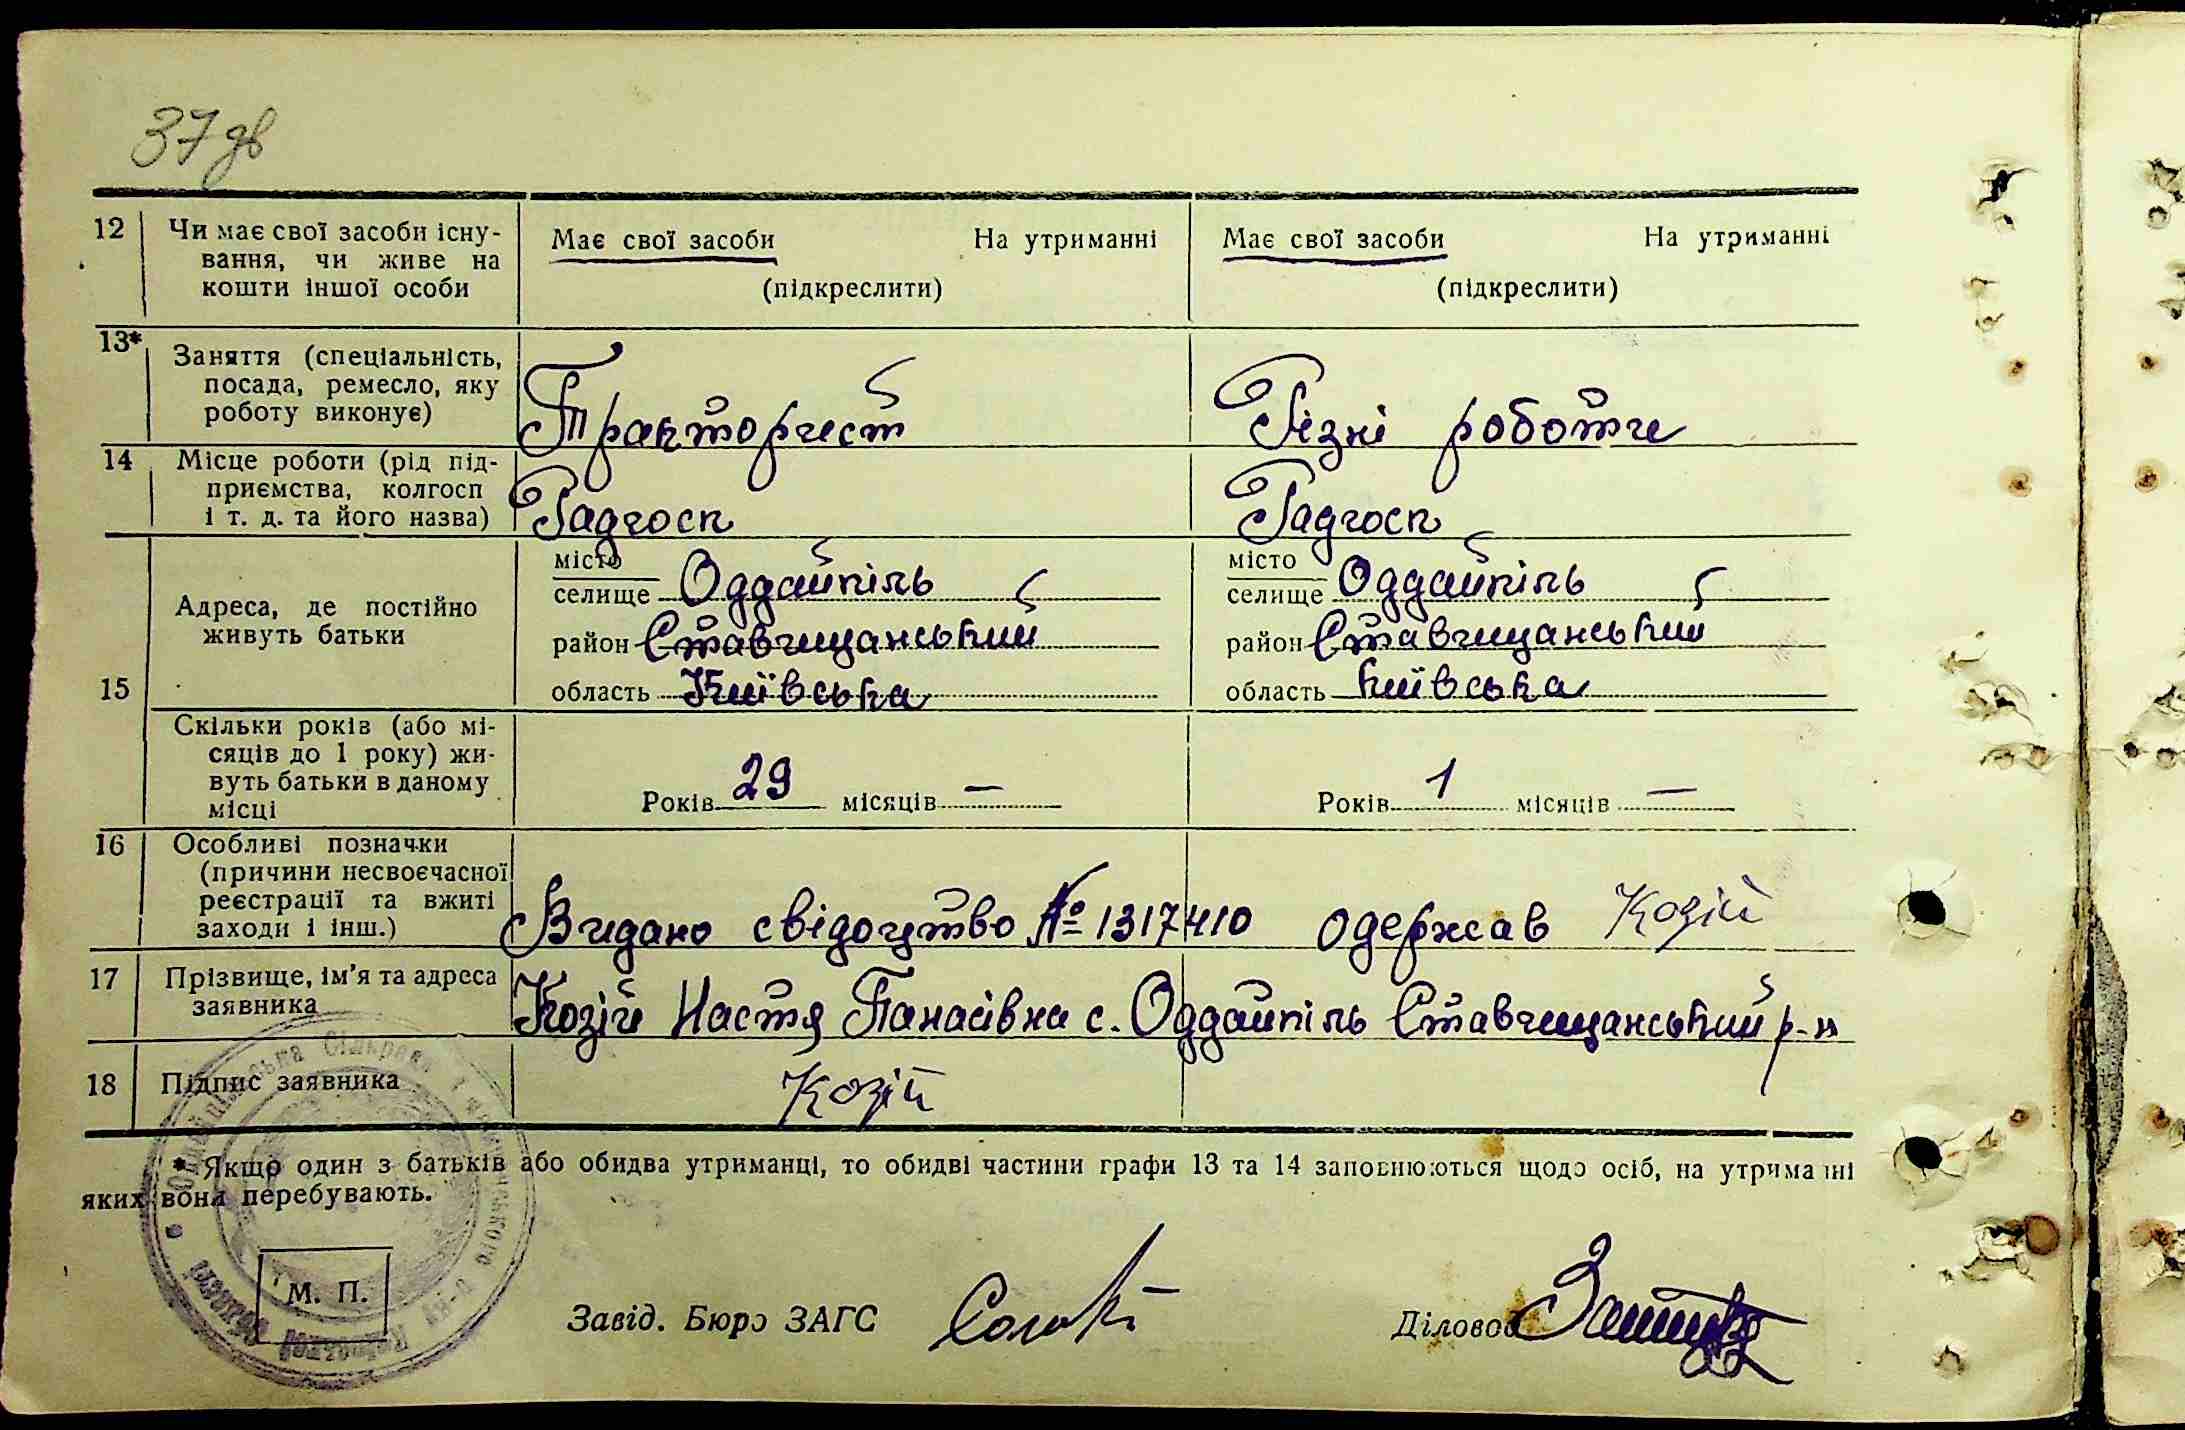 37 зв
12 Чи має свої засоби існу-
вання, чи живе на
кошти іншої особи
Має свої засоби На утриманні
(підкреслити)
Має свої засоби На утриманні
(підкреслити)
13* Заняття (спеціальність,
посада, ремесло, яку
роботу виконує)
Тракторист
Різні роботи
14 Місце роботи (рід під-
приємства, колгосп
і т. д. та його назва)
Радгосп
Радгосп
15 Адреса, де постійно
живуть батьки
місто
селище Оддайпіль
район Ставищанський
область Київська
місто
селище Оддайпіль
район Ставищанський
область Київська
Скільки років (або мі-
сяців до 1 року) жи-
вуть батьки в даному
місці
Років 29 місяців —
Років 1 місяців —
16 Особливі позначки
(причини несвоєчасної
реєстрації та вжиті
заходи і інш.)
Видано свідоцтво № 1317410 одержав Козій
17 Прізвище, ім'я та адреса
заявника
Козій Настя Панасівна с. Оддайпіль Ставищанський р-н
18 Підпис заявника
Козій
* Якщо один з батьків або обидва утриманці, то обидві частини графи 13 та 14 заповнюються щодо осіб, на утриманні
яких вони перебувають.
М. П.
Завід. Бюро ЗАГС
Діловод